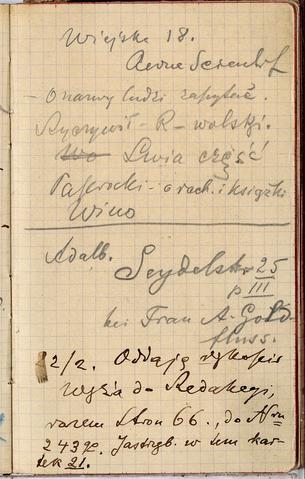 Wiejska 18.
- O nazwy ludzi zapytać.
Ryczywół - R - wolski.
Wo Lwia część
Paprocki - o rach. i książki
Wino
Adalb. Seydelstr 25
p III
bei Frau A. Gold-
fluss.
2/2. Oddaję rękopis
Wyżła do Redakcyi,
razem stron 66., do
2439. Jastrzęb. w tem kar-
tek 21.